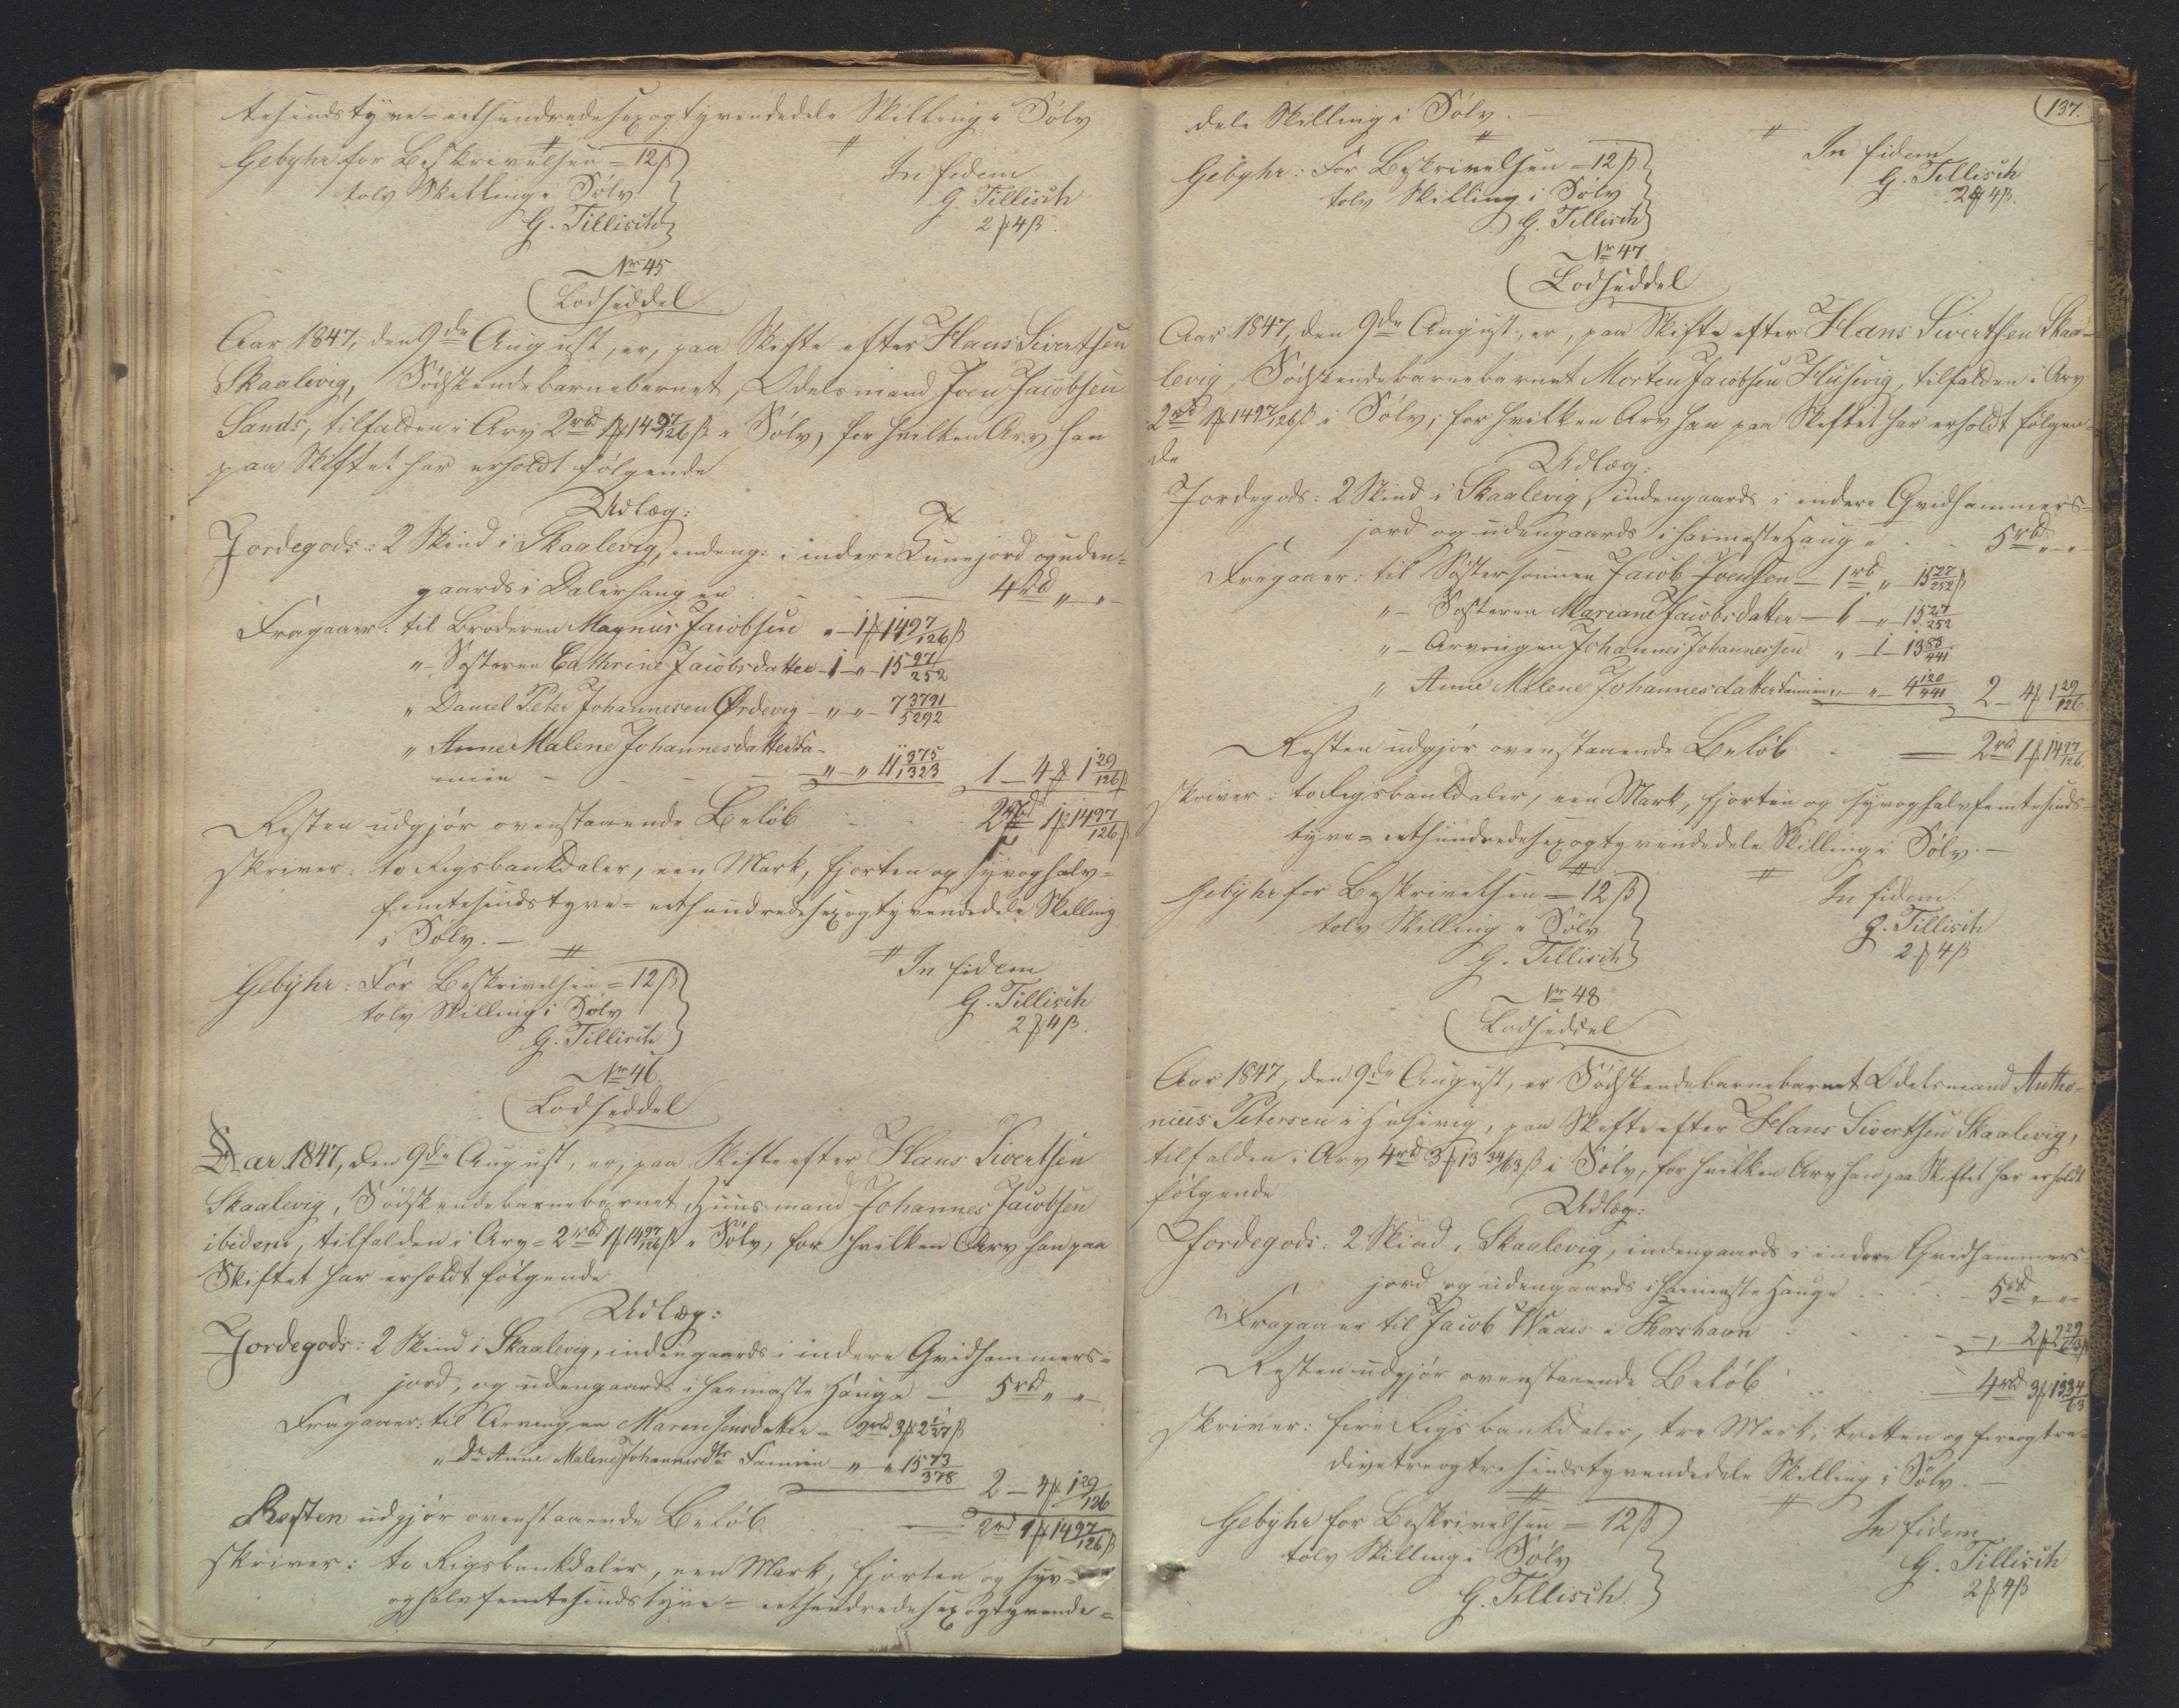 tesindstyve-eethundredesexogtyvendedele Skilling i Sølv
Gebyhr for Beskrivelsen = 12 ß
tolv Skilling i Sølv
G. Tillisch
In fidem
G. Tillisch
2 ℳ 4 ß.
Nr 45
Lodseddel
Aar 1847, den 9de August, er, paa Skifte efter Hans Sivertsen
Skaalevig, Södskendebarnebarnet, Odelsmand Joen Jacobsen
Sands, tilfalden i Arv 2rbd 1ℳ 14 97/126 ß i Sølv, for hvilken Arv han
paa Skiftet har erholdt følgende
Udlæg:
Jordegods: 2 Skind i Skaalevig, indeng: i indere Tunnjord og uden-
gaards i Dalerhaugen - - 4rbd " "
Fragaaer: til Broderen Magnus Jacobsen " - 1ℳ 14 97/126 ß
" - Søsteren Cathrine Jacobsdatter - 1 - " - 15 97/252
" Daniel Peter Johannesen Ørdevig - " " - 7 3791/5292
" Anne Malene Johannesdatter Fa-
mien - - - " " 11 375/1323 1 - 4ℳ 1 29/126 ß
Resten udgjør ovenstaaende Beløb - 2rbd 1ℳ 14 97/126 ß
skriver: to Rigsbankdaler, een Mark, fjorten og syvoghalv-
femtesindstyve-eethundredesexogtyvendedele Skilling
i Sølv. -
Gebyhr: For Beskrivelsen = 12 ß
tolv Skilling i Sølv
G. Tillisch
In fidem
G. Tillisch
2 ℳ 4 ß.
Nr 46.
Lodseddel
Aar 1847, den 9de August, er, paa Skifte efter Hans Sivertsen
Skaalevig, Södskendebarnebarnet, Huusmand Johannes Jacobsen
ibidem, tilfalden i Arv = 2rbd 1ℳ 14 97/126 ß i Sølv, for hvilken Arv han paa
Skiftet har erholdt følgende
Udlæg:
Jordegods: 2 Skind i Skaalevig, indengaards i indere Gridhammers-
jord, og udengaards i Haimaste Hauge - 5rbd " "
Fragaaer: til Arvingen Maren Jensdatter - 2rbd 3ℳ 2 1/27 ß
" Do Anne Malene Johannesdtr Famien " " 15 73/378 2 - 4ℳ 1 29/126
Resten udgjør ovenstaaende Beløb - 2rd 1ℳ 14 97/126 ß
skriver: to Rigsbankdaler, een Mark, fjorten og syv-
oghalvfemtesindstyve-eethundredesexogtyvende-
137.
dele Skilling i Sølv. -
Gebyhr: For Beskrivelsen = 12 ß
tolv Skilling i Sølv
G. Tillisch
In fidem
G. Tillisch
2ℳ 4 ß.
Nr 47
Lodseddel
Aar 1847, den 9de August, er, paa Skifte efter Hans Sivertsen Skaa-
levig, Södskendebarnebarnet Morten Jacobsen Husevig, tilfalden i Arv
2rbd 1ℳ 14 97/126 ß i Sølv; for hvilken Arv han paa Skiftet har erholdt følgen-
de
Udlæg:
Jordegods: 2 Skind i Skaalevig, indengaards i indere Gridhammers-
jord og udengaards i Haimaste Hauge - - 5rbd " "
Fragaaer: til Søstersønnen Jacob Joensen - 1rd " 15 27/252 ß
" - Søsteren Mariane Jacobsdatter - 1 - " - 15 27/252
" - Arvingen Johannes Johannessen " - 1 - 13 83/441
" Anne Malene Johannesdatter Famien " - " - 4 120/441 2 - 4ℳ 1 29/126
Resten udgjør ovenstaaende Beløb - 2rbd 1ℳ 14 97/126.
skriver: to Rigsbankdaler, een Mark, fjorten og syvoghalvfemtesinds-
tyve-eethundredesexogtyvendedele Skilling i Sølv. -
Gebyhr for Beskrivelsen = 12 ß
tolv Skilling i Sølv
G. Tillisch
In fidem
G. Tillisch
2 ℳ 4 ß
Nr 48
Lodseddel
Aar 1847, den 9de August, er Södskendebarnebarnet Odelsmand Antho-
nius Petersen i Husevig, paa Skifte efter Hans Sivertsen Skaalevig,
tilfalden i Arv 4rbd 3ℳ 13 34/63 ß i Sølv, for hvilken Arv han paa Skiftet har erholdt
følgende
Udlæg:
Jordegods: 2 Skind i Skaalevig, indengaards i indere Gridhammers-
jord og udengaards i Haimaste Hauge - - - 5rbd " "
Fragaaer til Jacob Waais i Thorshavn - - " 2ℳ 2 29/63 ß
Resten udgjør ovenstaaende Beløb - - 4rbd 3ℳ 13 34/63
skriver: fire Rigsbankdaler, tre Mark, tretten og fireogtre-
divetreogtresindstyvendedele Skilling i Sølv. -
Gebyhr for Beskrivelsen = 12 ß
tolv Skilling i Sølv
G. Tillisch.
In fidem
G. Tillisch
2 ℳ 4 ß